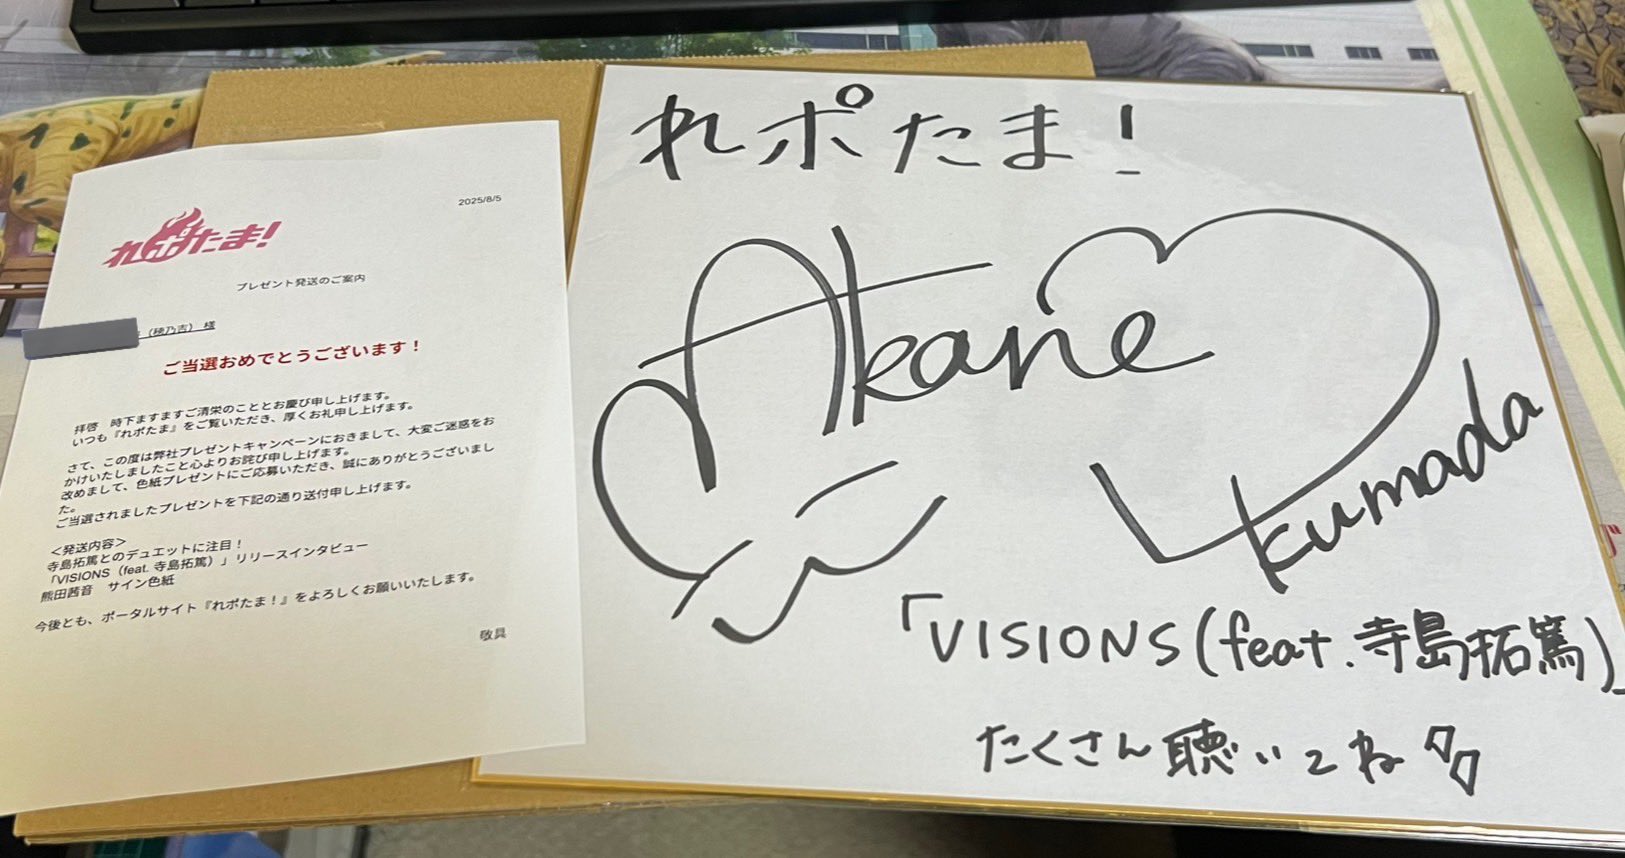 れポたま!
2025/8/5
プレゼント発送のご案内
(穂乃吉) 様
ご当選おめでとうございます!
拝啓 時下ますますご清栄のこととお慶び申し上げます。
いつも『れポたま』をご覧いただき、厚くお礼申し上げます。
さて、この度は弊社プレゼントキャンペーンにおきまして、大変ご迷惑をお
かけいたしましたこと心よりお詫び申し上げます。
改めまして、色紙プレゼントにご応募いただき、誠にありがとうございまし
た。
ご当選されましたプレゼントを下記の通り送付申し上げます。
<発送内容>
寺島拓篤とのデュエットに注目!
「VISIONS(feat. 寺島拓篤)」リリースインタビュー
熊田茜音 サイン色紙
今後とも、ポータルサイト『れポたま!』をよろしくお願いいたします。
敬具
れポたま!
Akane
Kumada
「VISIONS(feat.寺島拓篤)」
たくさん聴いてね